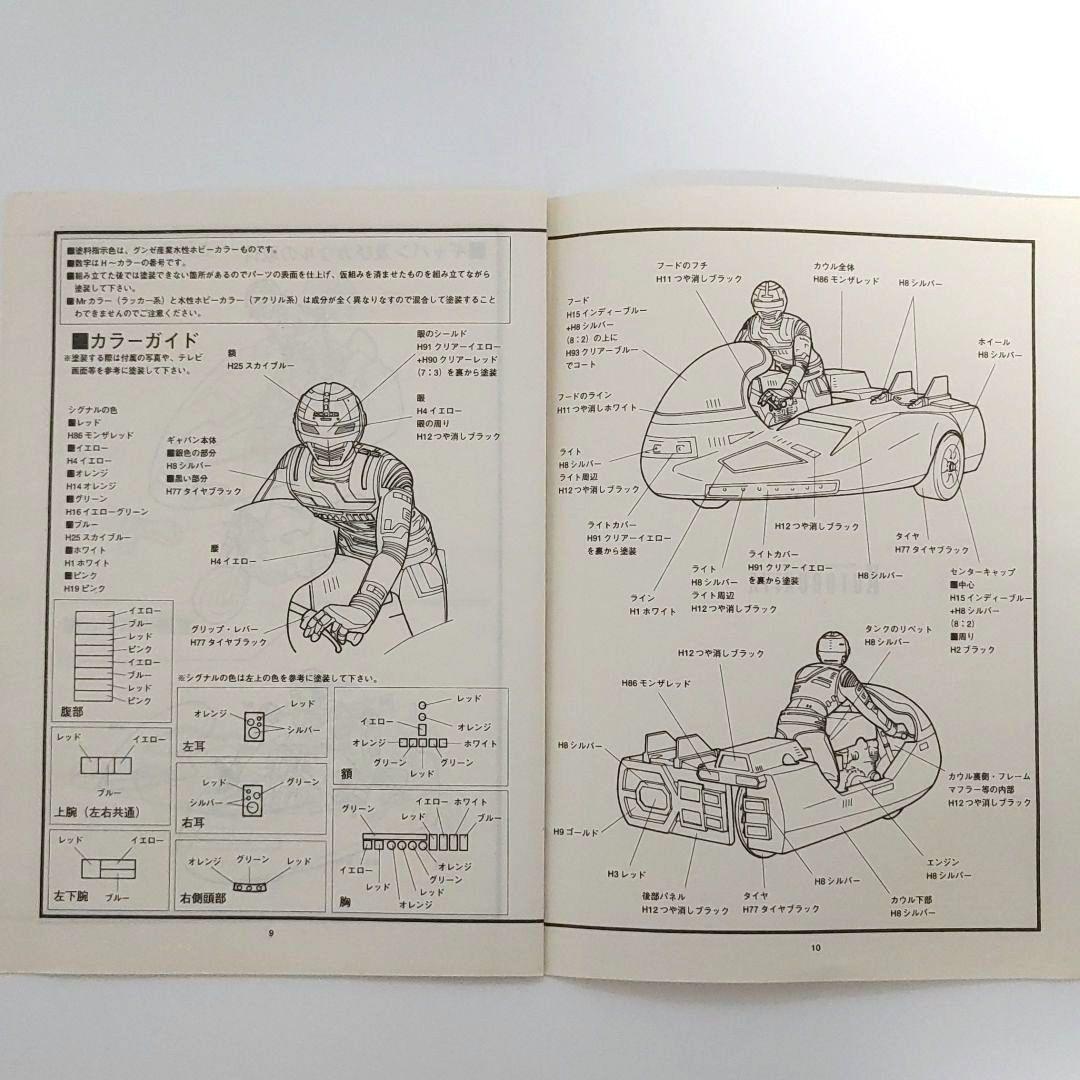 ■塗料指示色は、グンゼ産業水性ホビーカラーものです。
■数字はH〜カラーの番号です。
■組み立てた後では塗装できない箇所があるのでパーツの表面を仕上げ、仮組みを済ませたものを組み立てながら
塗装して下さい。
■Mrカラー（ラッカー系）と水性ホビーカラー（アクリル系）は成分が全く異なりなすので混合して塗装すること
わできませんのでご注意ください。
■カラーガイド
※塗装する際は付属の写真や、テレビ
画面等を参考に塗装して下さい。
額
H25スカイブルー
眼のシールド
H91クリアーイエロー
+H90クリアーレッド
(7：3)を裏から塗装
眼
H4イエロー
眼の周り
H12つや消しブラック
シグナルの色
■レッド
H86モンザレッド
■イエロー
H4イエロー
■オレンジ
H14オレンジ
■グリーン
H16イエローグリーン
■ブルー
H25スカイブルー
■ホワイト
H1ホワイト
■ピンク
H19ピンク
ギャバン本体
■銀色の部分
H8シルバー
■黒い部分
H77タイヤブラック
腰
H4イエロー
グリップ・レバー
H77タイヤブラック
※シグナルの色は左上の色を参考に塗装して下さい。
イエロー
ブルー
レッド
ピンク
イエロー
ブルー
レッド
ピンク
腹部
レッド
イエロー
ブルー
上腕（左右共通）
レッド
イエロー
ブルー
左下腕
オレンジ
レッド
シルバー
左耳
レッド
グリーン
シルバー
右耳
オレンジ
グリーン
レッド
右側頭部
レッド
イエロー
オレンジ
オレンジ
ホワイト
グリーン
グリーン
レッド
額
グリーン
イエロー
ホワイト
レッド
ブルー
イエロー
レッド
オレンジ
グリーン
レッド
オレンジ
胸
9
フードのフチ
H11つや消しブラック
カウル全体
H86モンザレッド
H8シルバー
フード
H15インディーブルー
+H8シルバー
(8：2)の上に
H93クリアーブルー
でコート
ホイール
H8シルバー
フードのライン
H11つや消しホワイト
ライト
H8シルバー
ライト周辺
H12つや消しブラック
ライトカバー
H91クリアーイエロー
を裏から塗装
H12つや消しブラック
タイヤ
H77タイヤブラック
ライトカバー
H91クリアーイエロー
を裏から塗装
H8シルバー
ライト
H8シルバー
ライト周辺
H12つや消しブラック
ライン
H1ホワイト
センターキャップ
■中心
H15インディーブルー
+H8シルバー
(8：2)
■周り
H2ブラック
タンクのリベット
H8シルバー
H12つや消しブラック
H86モンザレッド
H8シルバー
H9ゴールド
H3レッド
カウル裏側・フレーム
マフラー等の内部
H12つや消しブラック
エンジン
H8シルバー
H8シルバー
後部パネル
H12つや消しブラック
タイヤ
H77タイヤブラック
カウル下部
H8シルバー
10